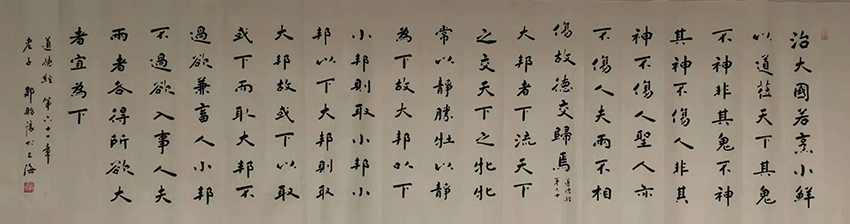 治大國若烹小鮮
以道莅天下其鬼
不神非其鬼不神
其神不傷人非其
神不傷人聖人亦
不傷人夫兩不相
傷故德交歸焉
道德經
第六十
大邦者下流天下
之交天下之牝牝
常以靜勝牡以靜
為下故大邦以下
小邦則取小邦小
邦以下大邦則取
大邦故或下以取
或下而取大邦不
過欲兼畜人小邦
不過欲入事人夫
兩者各得所欲大
者宜為下
道德經第六十一章
老子 於上海